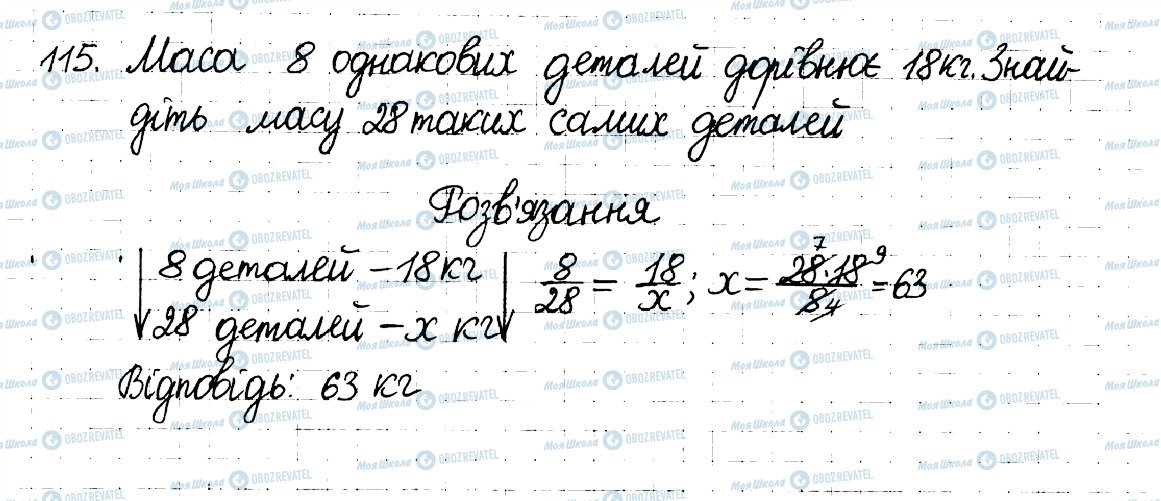 115. Маса 8 однакових деталей дорівнює 18 кг. Знай-
діть масу 28 таких самих деталей
Розв'язання
8 деталей – 18 кг
28 деталей – x кг
8/28 = 18/x; x = 28·18/8 = 63
Відповідь: 63 кг